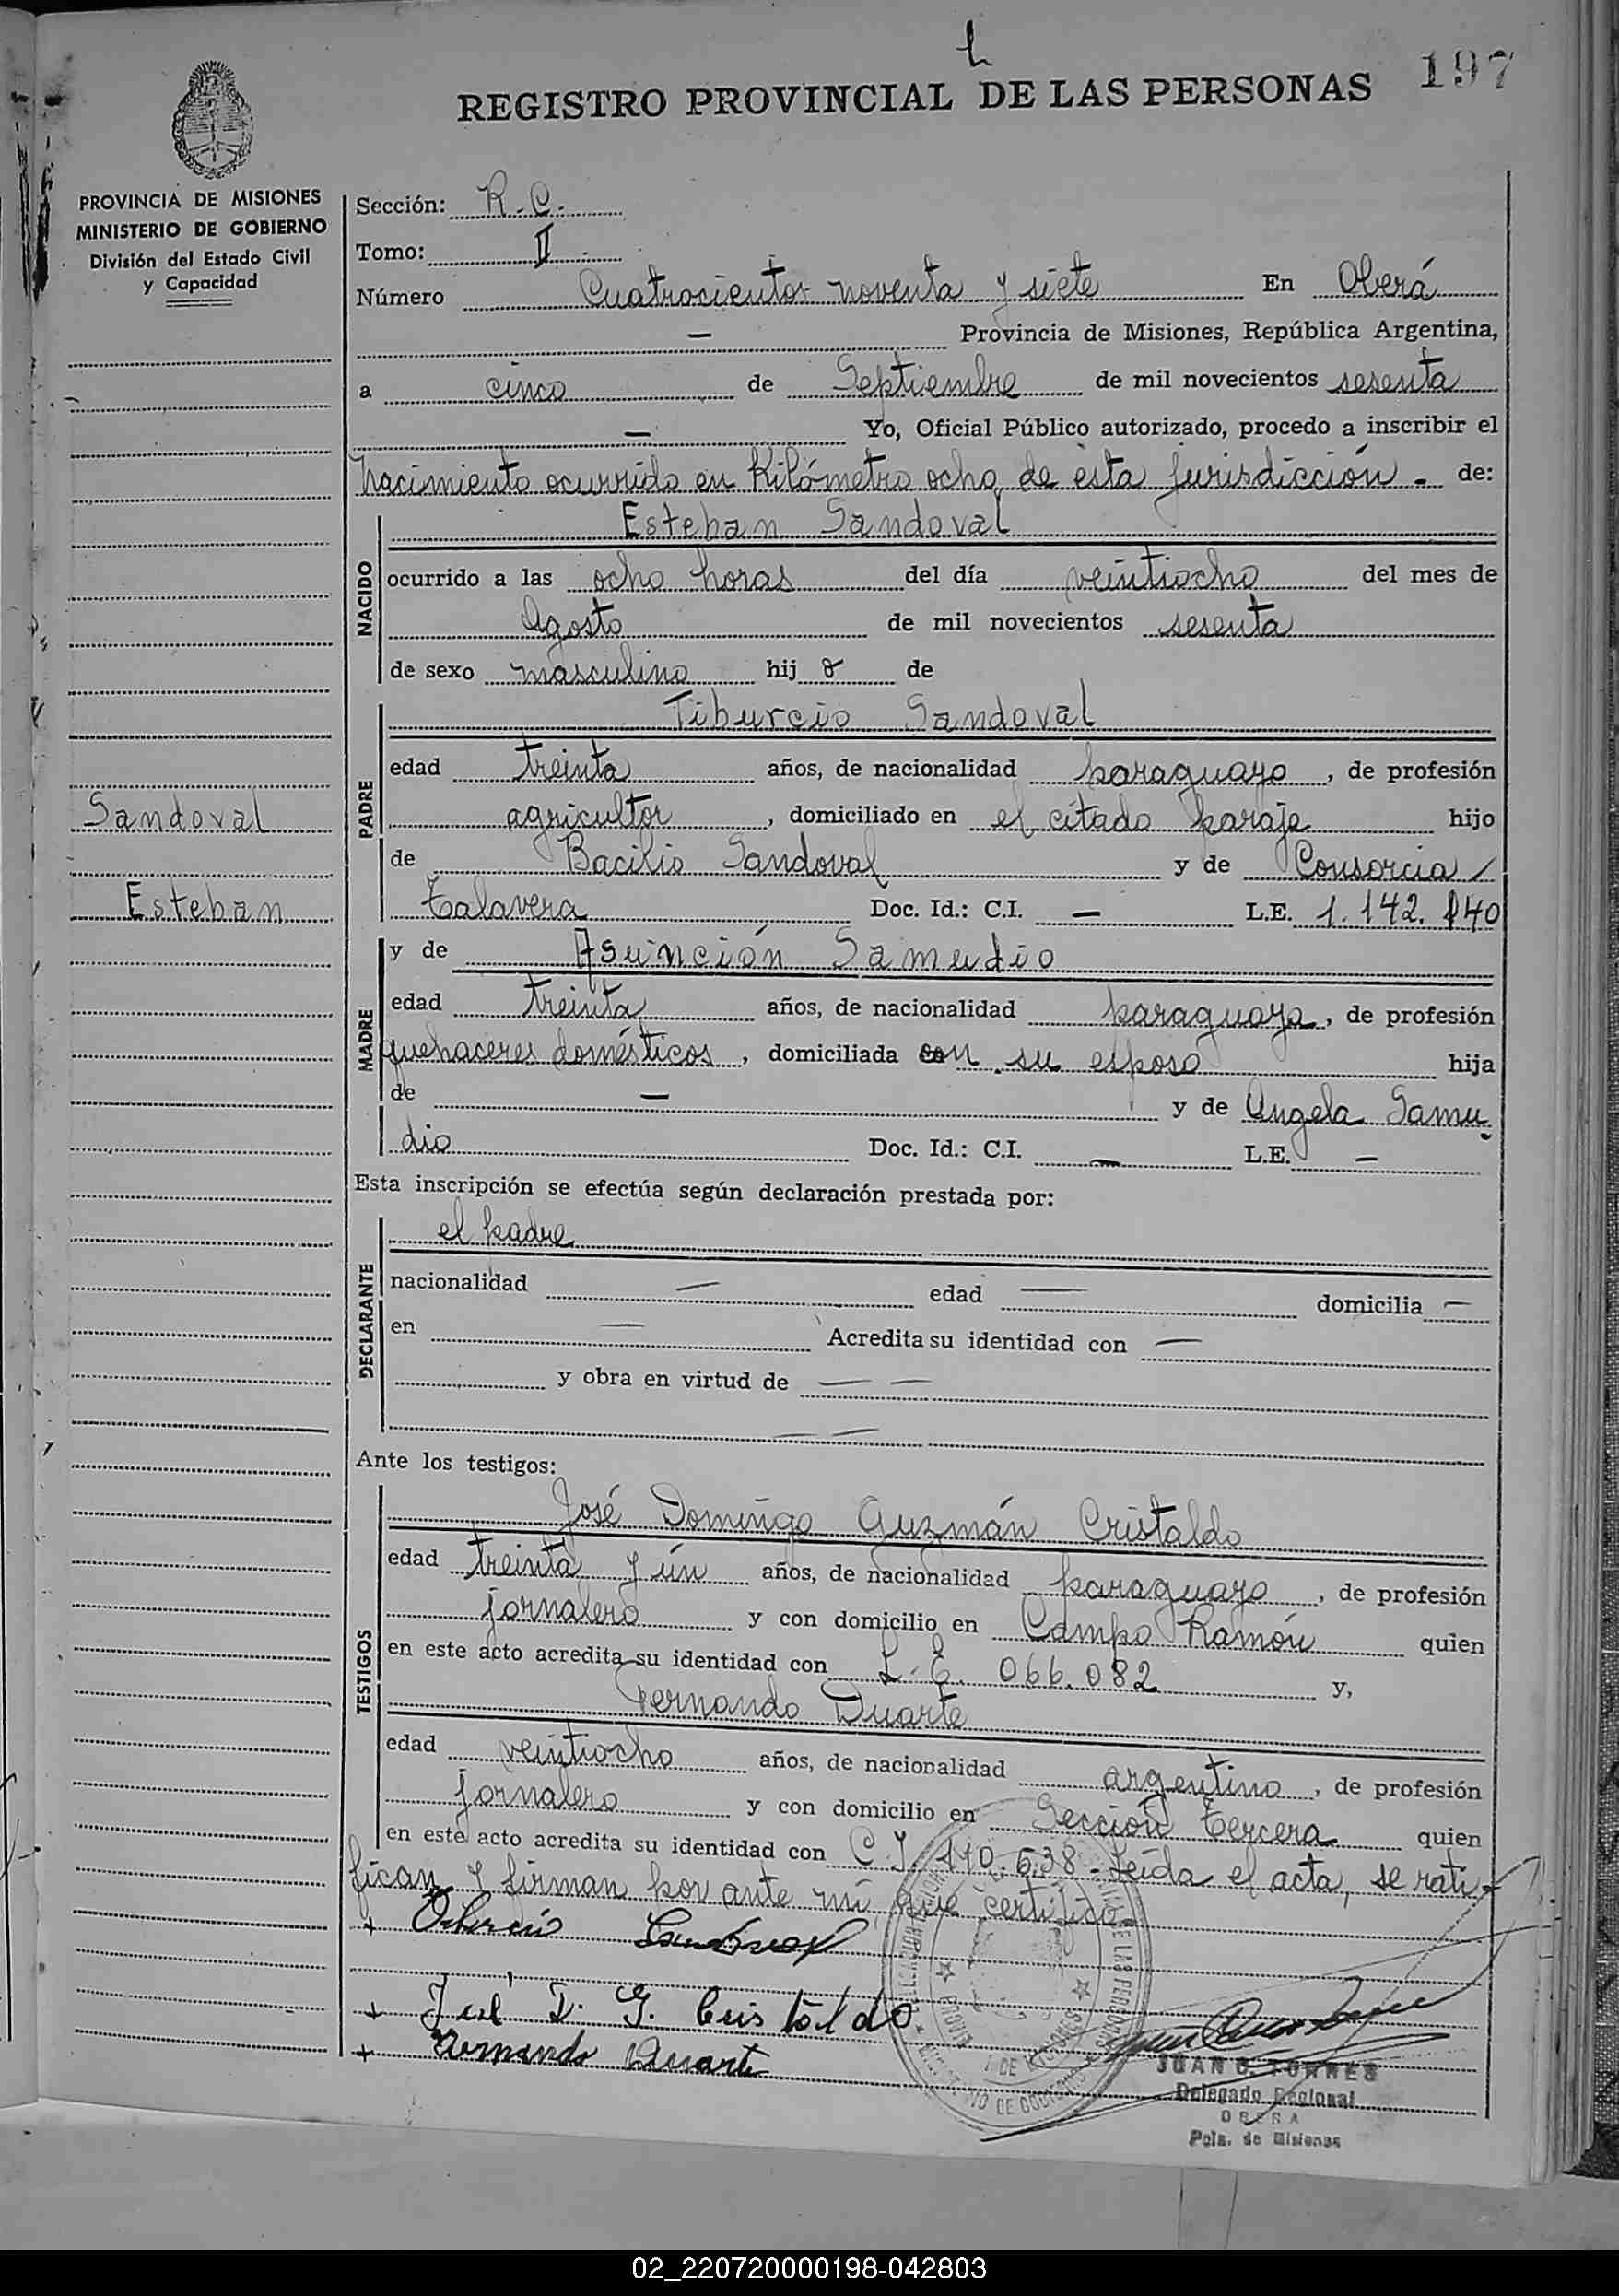 197
REGISTRO PROVINCIAL DE LAS PERSONAS
PROVINCIA DE MISIONES
MINISTERIO DE GOBIERNO
División del Estado Civil
y Capacidad
Sandoval
Esteban
Sección: R.C.
Tomo: II
Número Cuatrocientos noventa y siete En Oberá
— Provincia de Misiones, República Argentina,
a cinco de Septiembre de mil novecientos sesenta
— Yo, Oficial Público autorizado, procedo a inscribir el
nacimiento ocurrido en Kilómetro ocho de ésta jurisdicción - de:
Esteban Sandoval
NACIDO
ocurrido a las ocho horas del día veintiocho del mes de
Agosto de mil novecientos sesenta
de sexo masculino hij o de
Tiburcio Sandoval
PADRE
edad treinta años, de nacionalidad paraguayo, de profesión
agricultor, domiciliado en el citado paraje hijo
de Bacilio Sandoval y de Consorcia /
Talavera Doc. Id.: C.I. — L.E. 1.142.840
y de Asunción Samudio
MADRE
edad treinta años, de nacionalidad paraguaya, de profesión
quehaceres domésticos, domiciliada con su esposo hija
de — y de Angela Samu-
dio Doc. Id.: C.I. — L.E. —
Esta inscripción se efectúa según declaración prestada por:
el padre
DECLARANTE
nacionalidad — edad — domicilia —
en — Acredita su identidad con —
y obra en virtud de — —
— —
Ante los testigos:
José Domingo Guzmán Cristaldo
TESTIGOS
edad treinta y ún años, de nacionalidad paraguayo, de profesión
jornalero y con domicilio en Campo Ramón quien
en este acto acredita su identidad con L.E. 066.082 y,
Fernando Duarte
edad veintiocho años, de nacionalidad argentino, de profesión
jornalero y con domicilio en Sección Tercera quien
en este acto acredita su identidad con C.I. 110.638 - Leída el acta, se rati-
fican y firman por ante mí, que certifico.
+ Tiburcio Sandoval
+ José D. G. Cristaldo
+ Fernando Duarte
JUAN C. TORRES
Delegado Regional
OBERA
Pcia. de Misiones
02_220720000198-042803